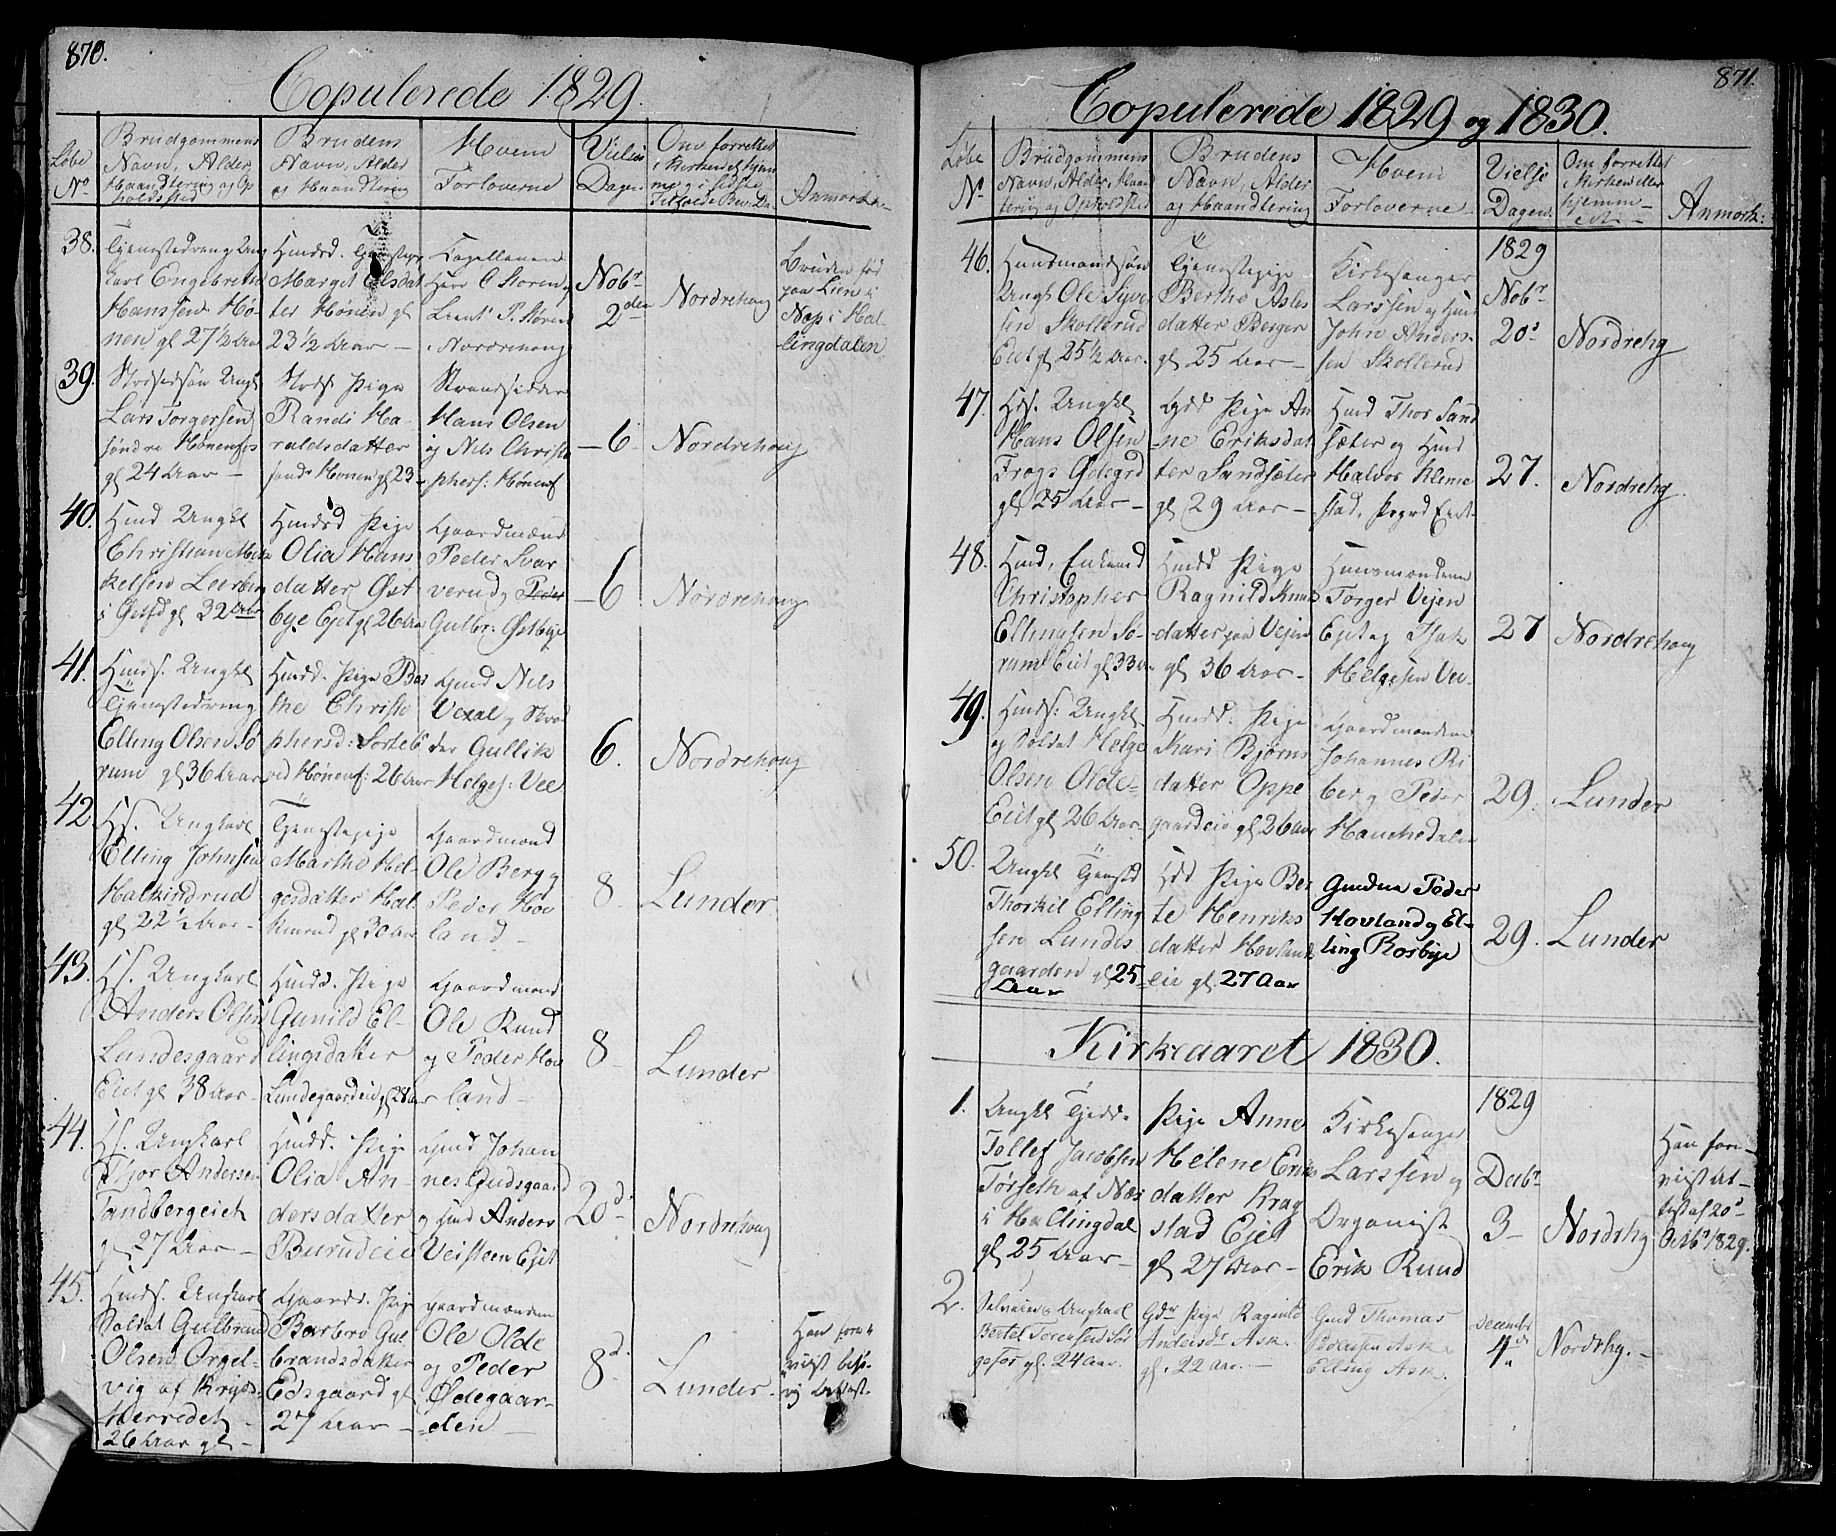 870.
Copulerede 1829.
Løbe No
Brudgommens Navn, Alder, Haandtering og Opholdssted
Brudens Navn, Alder og Haandtering
Hvem Forloverne
Vielses Dagen
Om forrettet i Kirken el hjemme
Anmærk:
38.
Tjenestedreng Ung
karl Engebreth
Hanssen Høne-
nen gl 27½ Aar
Huusd. Tjenestepige
Margit Olsdat
ter Hønen gl
23½ Aar –
Capellanen
Herr C Støren og
P. Støren
Norderehoug
Nobr
2den
Nordrehoug
Bruden fød
paa Lien i
Næs i Hal-
lingdalen
39.
Ungk
Lars Torgersen
søndre Hønenfos
gl 24 Aar –
Pige
Randi Ha-
raldsdatter
sønd Hønen gl 23
Strandsidder
Hans Olsen
og Nils Christo
phers: Hønenf
– 6 –
Nordrehoug
40.
Huusd Ungk
Christian Mi
kelsen Leerberg
i gl 32 Aar
Huusd Pige
Olia Hans
datter Øst
bye Ejet gl 26 Aar
Gaardmænd
Peder Svar
verud og Peder
Gulbr: Østbye
– 6
Nordrehoug
41.
Huuss. Ungkl
Tjenestedreng
Elling Olsen So
rum gl 36 Aar
Huusd. Pige Ber
the Christo
phersd: Sorteb
ved Hønenf: 26 Aar
Gmd Nils
Vexal og
der Gullik
Helges: Vee
6.
Nordrehoug
42
Hs. Ungkarl
Elling Johnsen
Halkinrud
gl 22½ Aar –
Tjenestepige
Marthe Hel-
gesdatter Hal
gl 30 Aar
Gaardmænd
Ole Berg og
Peder Hov
land –
8
Lunder.
43.
Hs. Ungkarl
Anders Olsen
Lundesgaard
Eiet gl 38 Aar –
Huusd. Pige
Gunild El-
lingsdatter
Lundegaardeie gl 28 Aar
Gaardmænd
Ole Rund
og Peder Hov
land –
8 –
Lunder
44.
Hs. Ungkarl
Thor Andersen
Tandbergeiet
gl 27 Aar –
Huusd. Pige
Olia An-
dersdatter
Burudeie
Gmd Johan
nes Gudsgaard
og Hmd Anders
Veisteen Ejet
20d.
Nordrehoug
45.
Huuss. Ungkarl
Soldat Gulbrand
Olsen Orgel-
vig af Kryds-
Herredet –
26 Aar gl –
Gaardd. Pige
Barbro Gul
brandsdatter
Edsgaard gl
27 Aar –
Gaardmændene
Ole Olde
og Peder
Ødegaar-
den –
8d.
Lunder.
Han fore
viist behø
rig Attest.
871.
Copulerede 1829 og 1830.
Løbe No
Brudgommens Navn, Alder, Haandtering og Opholdsted
Brudens Navn, Alder og Haandtering
Hvem Forloverne –
Vielse Dagen.
Om forrettet i Kirken eller hjemme
Anmærk:
46.
Huusmandssøn
Ungk Ole Syver
sen Skollerud
Eiet gl 25½ Aar.
Tjenestepige
Berthe Asles
datter Berger
gl 25 Aar –
Kirkesanger
Larssen og Hmd
John Anders-
sen Skollerud
1829
Nobr
20d
Nordrehg
47.
Hs. Ungkl
Hans Olsen
Frogs Ødegrd
gl 25 Aar –
Gdd Pige An
ne Eriksdat
ter Sandsæter
gl 29 Aar –
Hmd Thor Sand
sæter og Hmd
Halvor Kleme
stad,
27.
Nordrehg.
48.
Hmd, Enkemd
Christopher
Ellingsen So-
rum Eiet gl 33 Aar
Huusd Pige
Ragnild Knuds
datter paa Vejen
gl 36 Aar –
Huusmændene
Torger Vejen
Ejet og Isak
Helgesen Vee –
27
Nordrehoug
49.
Huuss: Ungkl
og Soldat Helge
Olsen Olde-
Eiet gl 26 Aar –
Huusd. Pige
Kari Bjørns
datter Oppe
gaardeie gl 26 Aar
Gaardmændene
Johannes Ri
ber og Peder
Haugedalen
29.
Lunder
50.
Ungkl Tjenestd
Thorkil Elling
sen Lundes
gaarden gl 25
Aar
Hdd Pige Ber
te Henriks
datter Hovland
eie gl. 27 Aar
Gmdne Peder
Hovland og El-
ling Rosbye
29.
Lunder
Kirkeaaret 1830.
1.
Ungkl
Tollef Jacobsen
Torseth af Næs
i Hallingdal
gl 25 Aar –
Pige Anne
Helene Eriks
datter Krag
stad Ejet
gl 27 Aar –
Kirkesanger
Larssen og
Organist
Erik Ruud
1829
Decbr
3 –
Nordrhg
Han fore-
viist At-
test af 20d
Octbr 1829.
2.
Ungkarl
Bertel Torensen Sør
gefos gl. 24 Aar.
Gdr Pige Ragnild
Andersdr Ask.
gl. 22 Aar. –
Gmd Thomas
Pedersen Ask &
Elling Ask.
Decembr
4de
Nordrhg. –